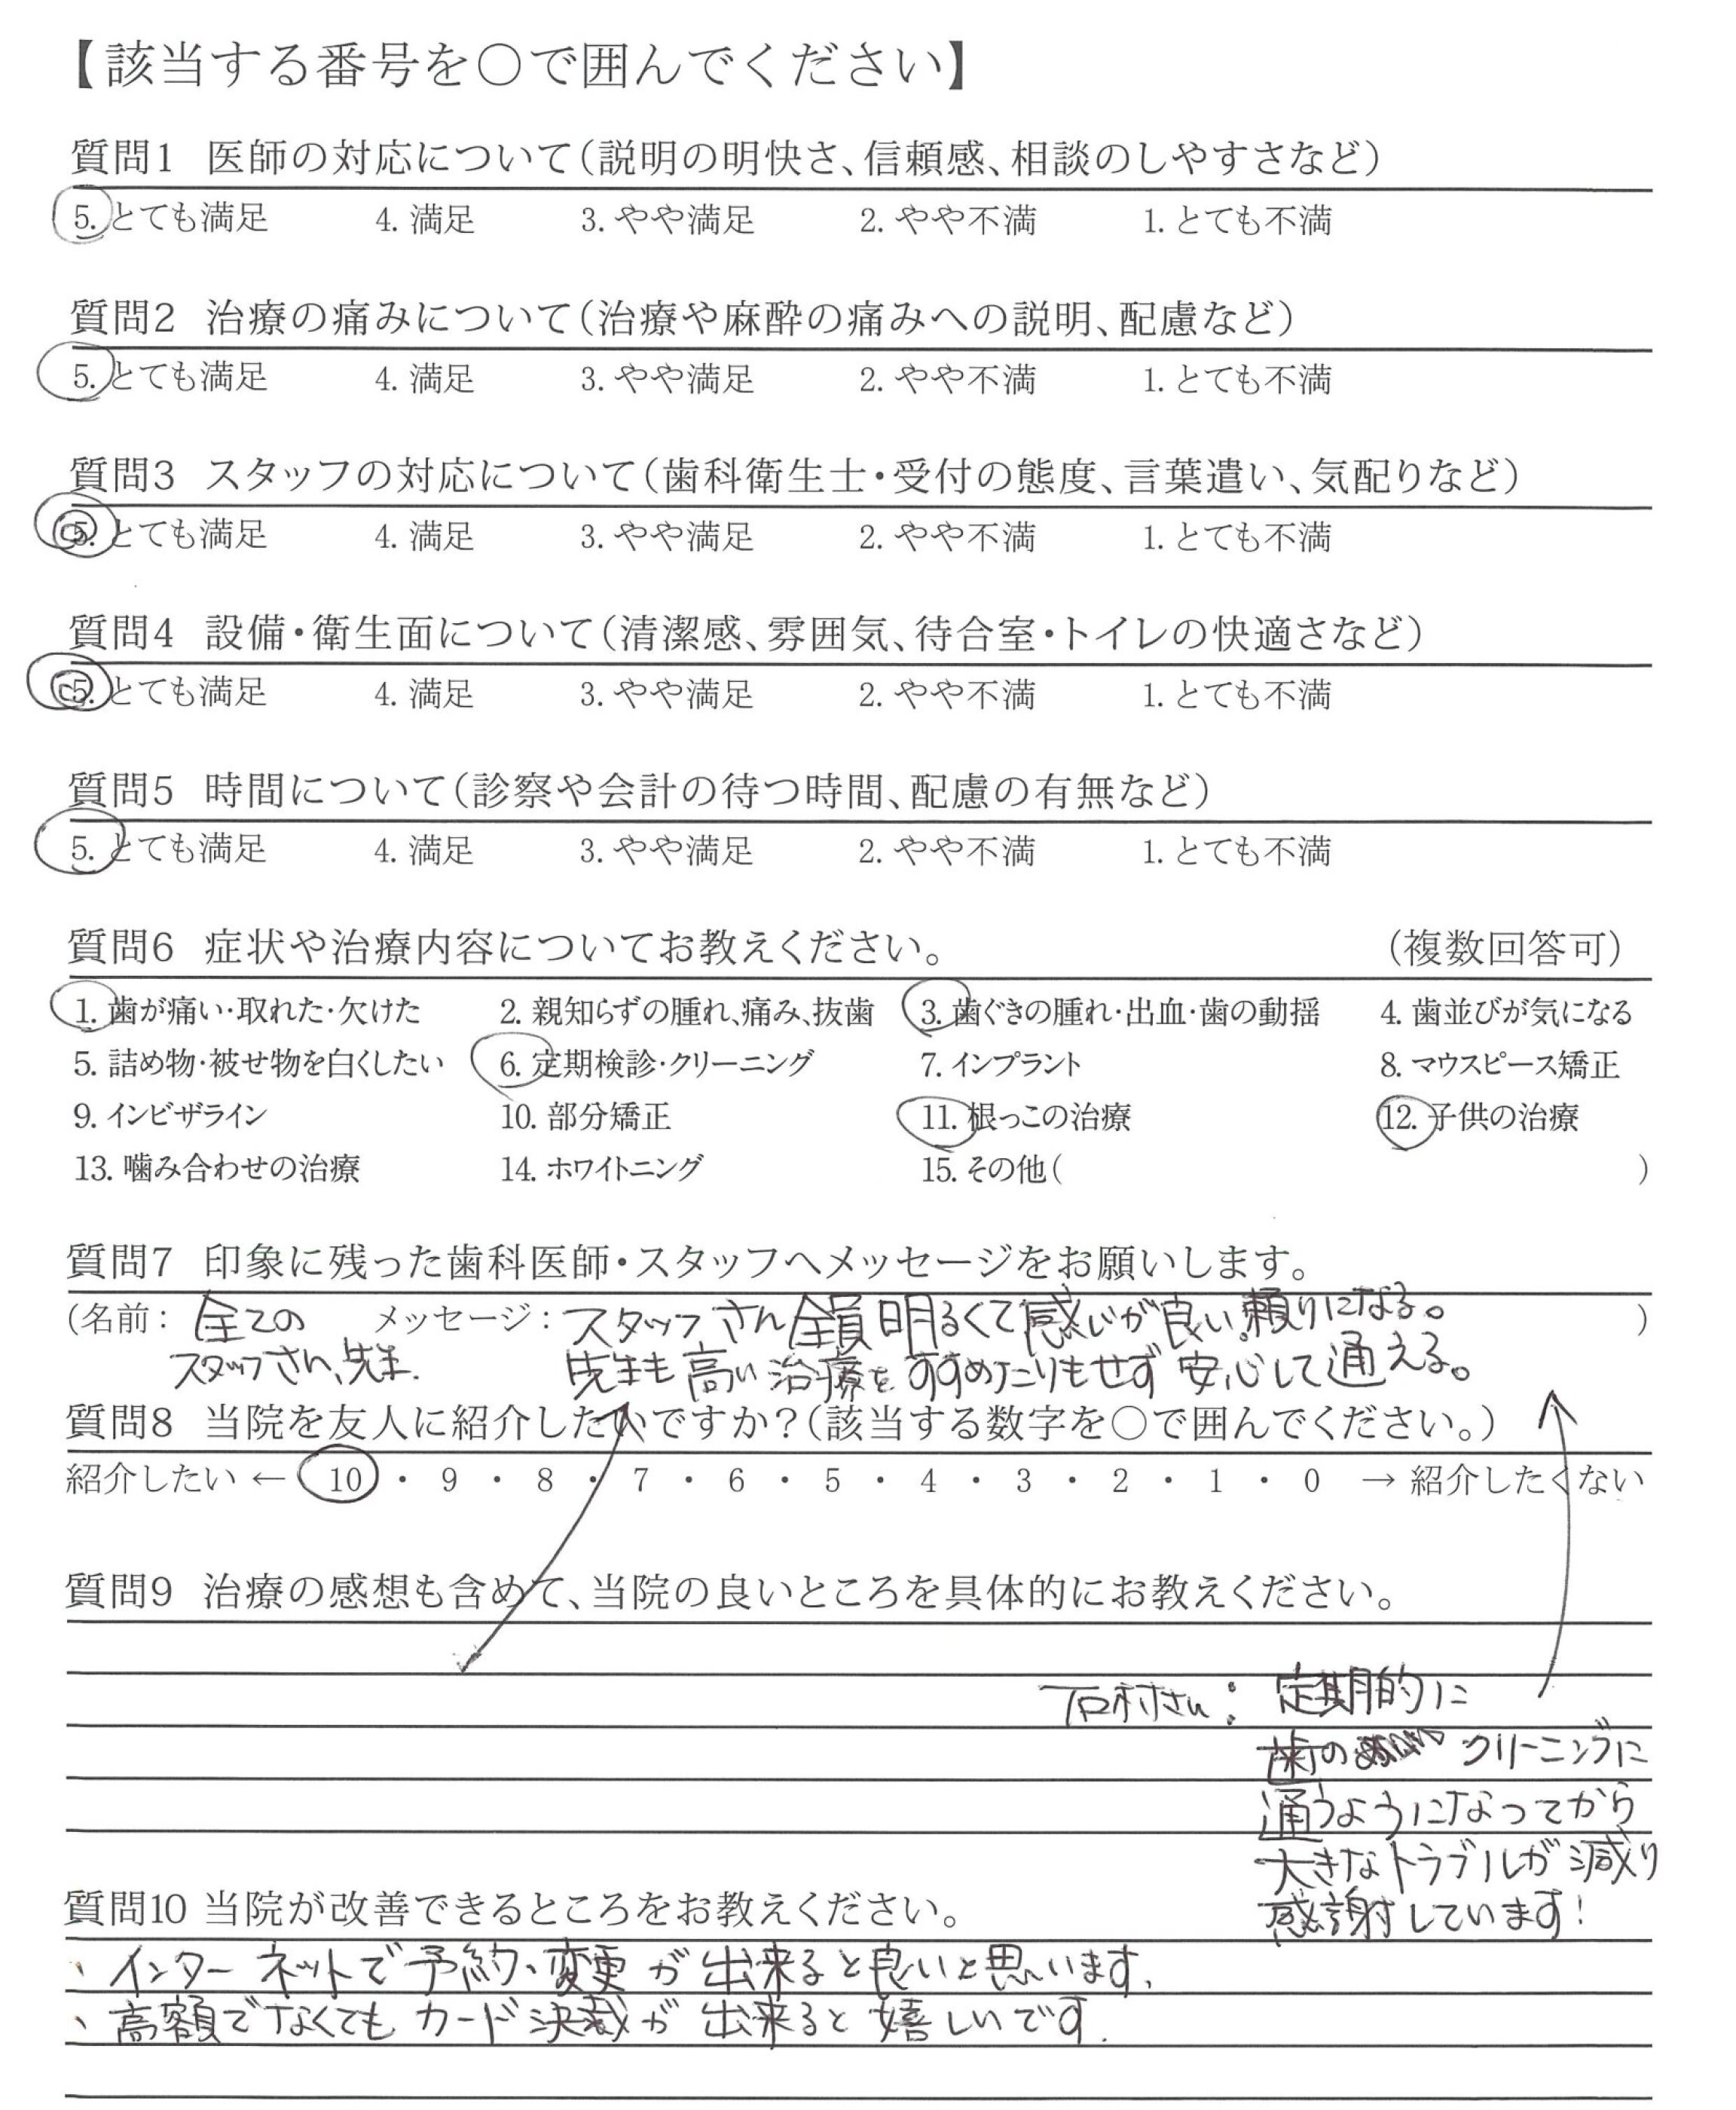 【該当する番号を○で囲んでください】
質問1 医師の対応について(説明の明快さ、信頼感、相談のしやすさなど)
5.とても満足 4.満足 3.やや満足 2.やや不満 1.とても不満
質問2 治療の痛みについて(治療や麻酔の痛みへの説明、配慮など)
5.とても満足 4.満足 3.やや満足 2.やや不満 1.とても不満
質問3 スタッフの対応について(歯科衛生士・受付の態度、言葉遣い、気配りなど)
5.とても満足 4.満足 3.やや満足 2.やや不満 1.とても不満
質問4 設備・衛生面について(清潔感、雰囲気、待合室・トイレの快適さなど)
5.とても満足 4.満足 3.やや満足 2.やや不満 1.とても不満
質問5 時間について(診察や会計の待つ時間、配慮の有無など)
5.とても満足 4.満足 3.やや満足 2.やや不満 1.とても不満
質問6 症状や治療内容についてお教えください。 (複数回答可)
1.歯が痛い・取れた・欠けた 2.親知らずの腫れ、痛み、抜歯 3.歯ぐきの腫れ・出血・歯の動揺 4.歯並びが気になる
5.詰め物・被せ物を白くしたい 6.定期検診・クリーニング 7.インプラント 8.マウスピース矯正
9.インビザライン 10.部分矯正 11.根っこの治療 12.子供の治療
13.噛み合わせの治療 14.ホワイトニング 15.その他( )
質問7 印象に残った歯科医師・スタッフへメッセージをお願いします。
(名前: 全ての メッセージ: スタッフさん全員明るくて感じが良い。頼りになる。 )
スタッフさん、先生. 先生も高い治療をすすめたりもせず安心して通える。
質問8 当院を友人に紹介したいですか?(該当する数字を○で囲んでください。)
紹介したい ← 10 ・ 9 ・ 8 ・ 7 ・ 6 ・ 5 ・ 4 ・ 3 ・ 2 ・ 1 ・ 0 → 紹介したくない
質問9 治療の感想も含めて、当院の良いところを具体的にお教えください。
さん: 定期的に
歯の クリーニングに
通うようになってから
大きなトラブルが減り
感謝しています!
質問10 当院が改善できるところをお教えください。
、インターネットで予約、変更が出来ると良いと思います.
、高額でなくてもカード決裁が出来ると嬉しいです.